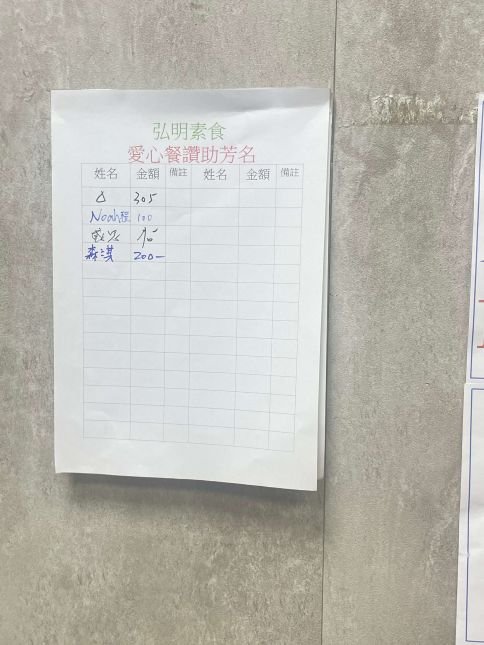 弘明素食
愛心餐讚助芳名
姓名 金額 備註 姓名 金額 備註
305
Noah程 100
森淇 200-